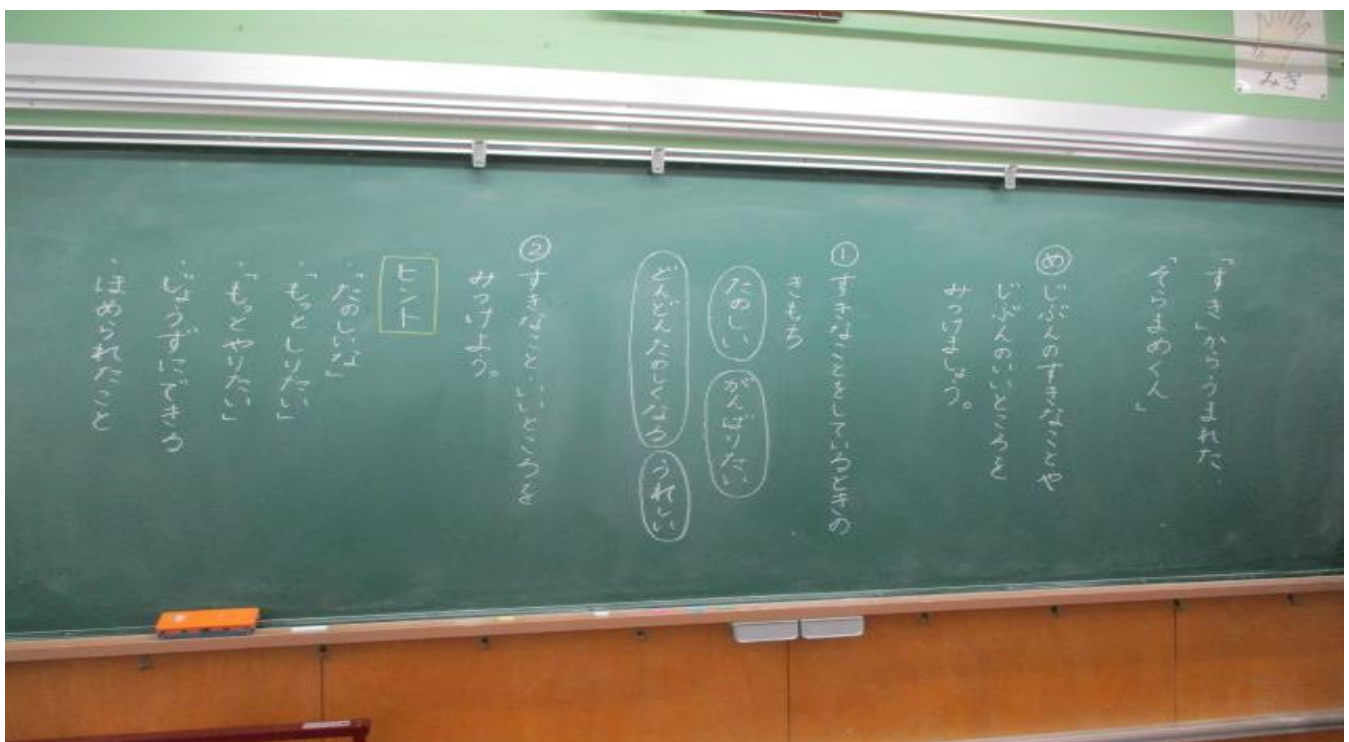 「すき」からうまれた
「そらまめくん」
め じぶんのすきなことや
じぶんのいいところを
みつけましょう。
① すきなことをしているときの
きもち
たのしい がんばりたい
どんどんたのしくなる うれしい
② すきなこと・いいところを
みつけよう。
ヒント
・「たのしいな」
・「もっとしりたい」
・「もっとやりたい」
・じょうずにできる
・ほめられたこと
みぎ